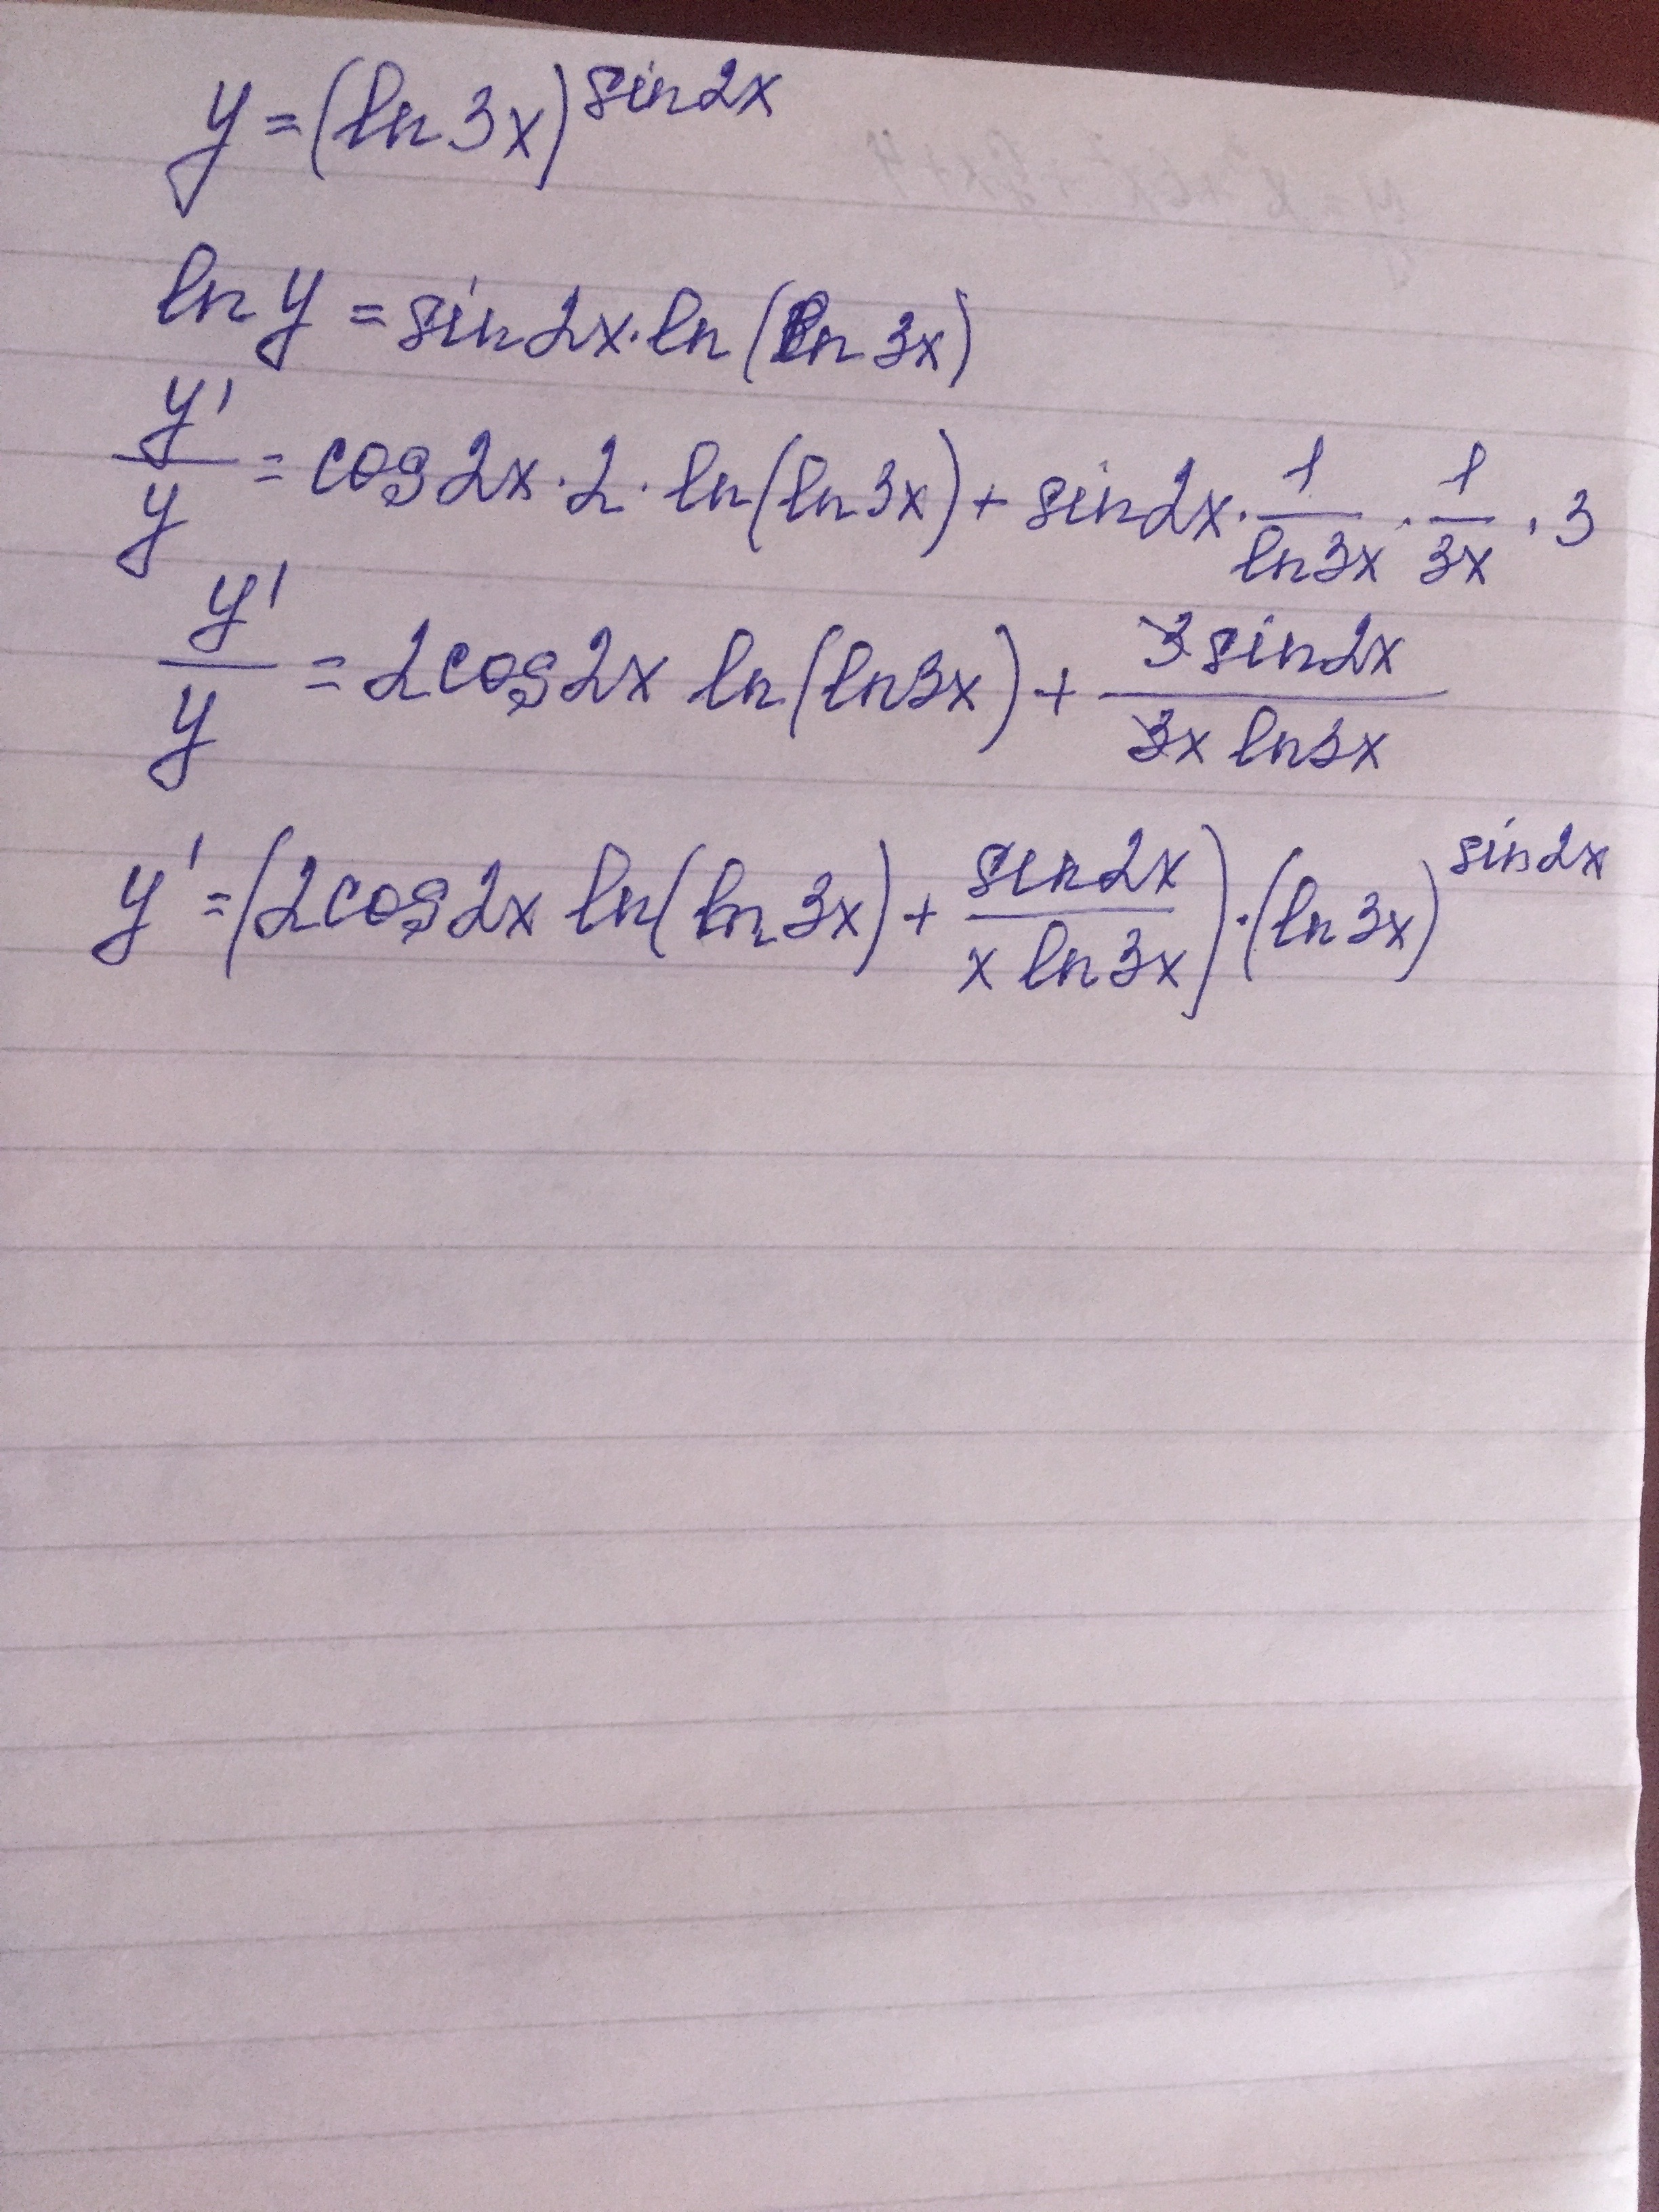 y = (ln 3x)^sin2x
ln y = sin2x · ln (ln 3x)
y'/y = cos2x · 2 · ln(ln3x) + sin2x · 1/ln3x · 1/3x · 3
y'/y = 2cos2x ln(ln3x) + 3sin2x/3x ln3x
y' = (2cos2x ln(ln3x) + sin2x/x ln3x) · (ln3x)^sin2x